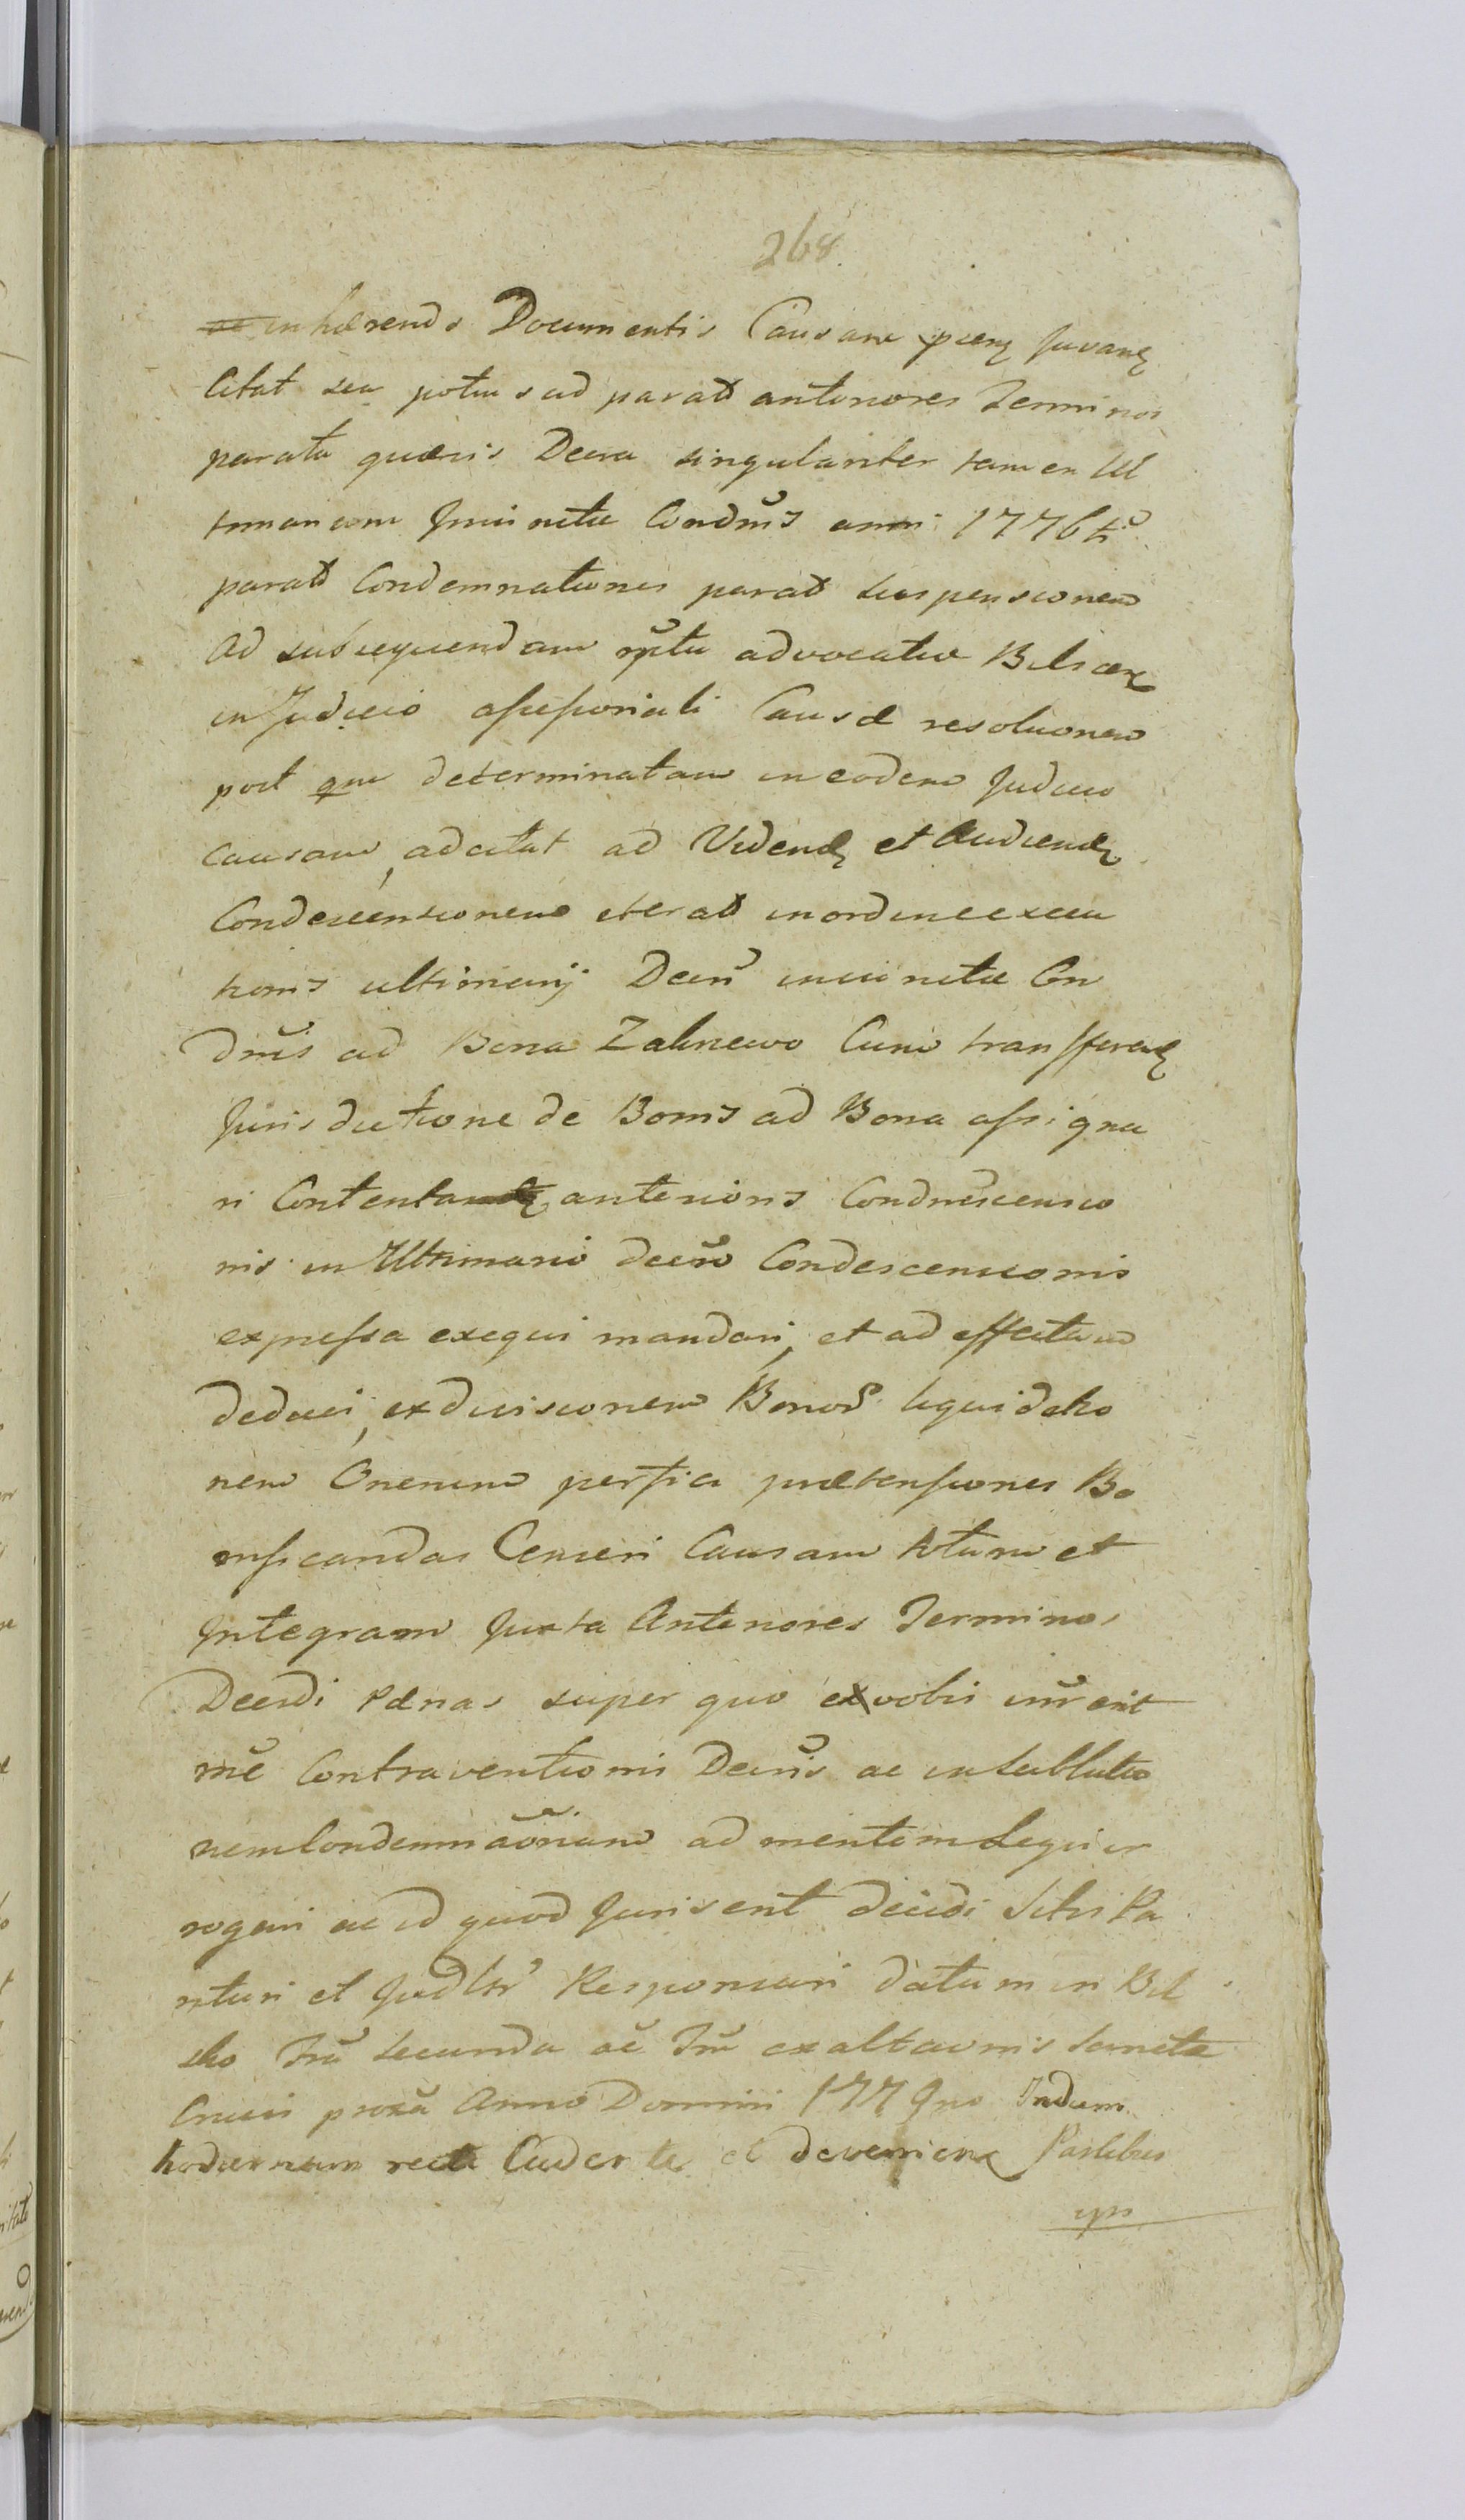 268
inhærendo Documentis Causam pñem Juvan
Citat seu potius ad parato anteriores Terminos
parata quævis Decra singulariter tamen Ul
timarium Juncitæ Condnis anni 1776
parato Condemnationis parato suspensionem
Ad subsequendam advocatæ Bilscen
in Judicio assessoriali Causæ resolucionem
post qm determinatam in eodem Judicio
causam, adcitat ad Vidend et Audiend
Condescensionem iterato in ordine execu
tionis ultimarij Decri Con
dnis ad Bona Zalinewo Cum transfferend
Jurisdictione de Bonis ad Bona assigna
ri Contenta anterioris Condnescensio
nis in Ultimario decro Condescensionis
expressa exequi mandari, et ad effectum
deduci, exdivisionem Bonor liquidatio
nem Onerum perfici prætensiones Bo
nificandas Censeri Causam totam et
Integram Juxta Anteriores Terminos
Decidi Pænas super quo ex vobis inr erit
mě Contraventionis Decris ac insublutio
nem Condemnaõnum ad mentem Legu ir
rogari ac id quod Juris erit decidi Sitis Pa
rituri et Judltr Responsuri datum in Bil
sko fria secunda ač fria exaltaonis Sanctæ
Crucis proxã Anno Domini 177 Indum
hodiernum recte Cadente et devenien Partibus
ips